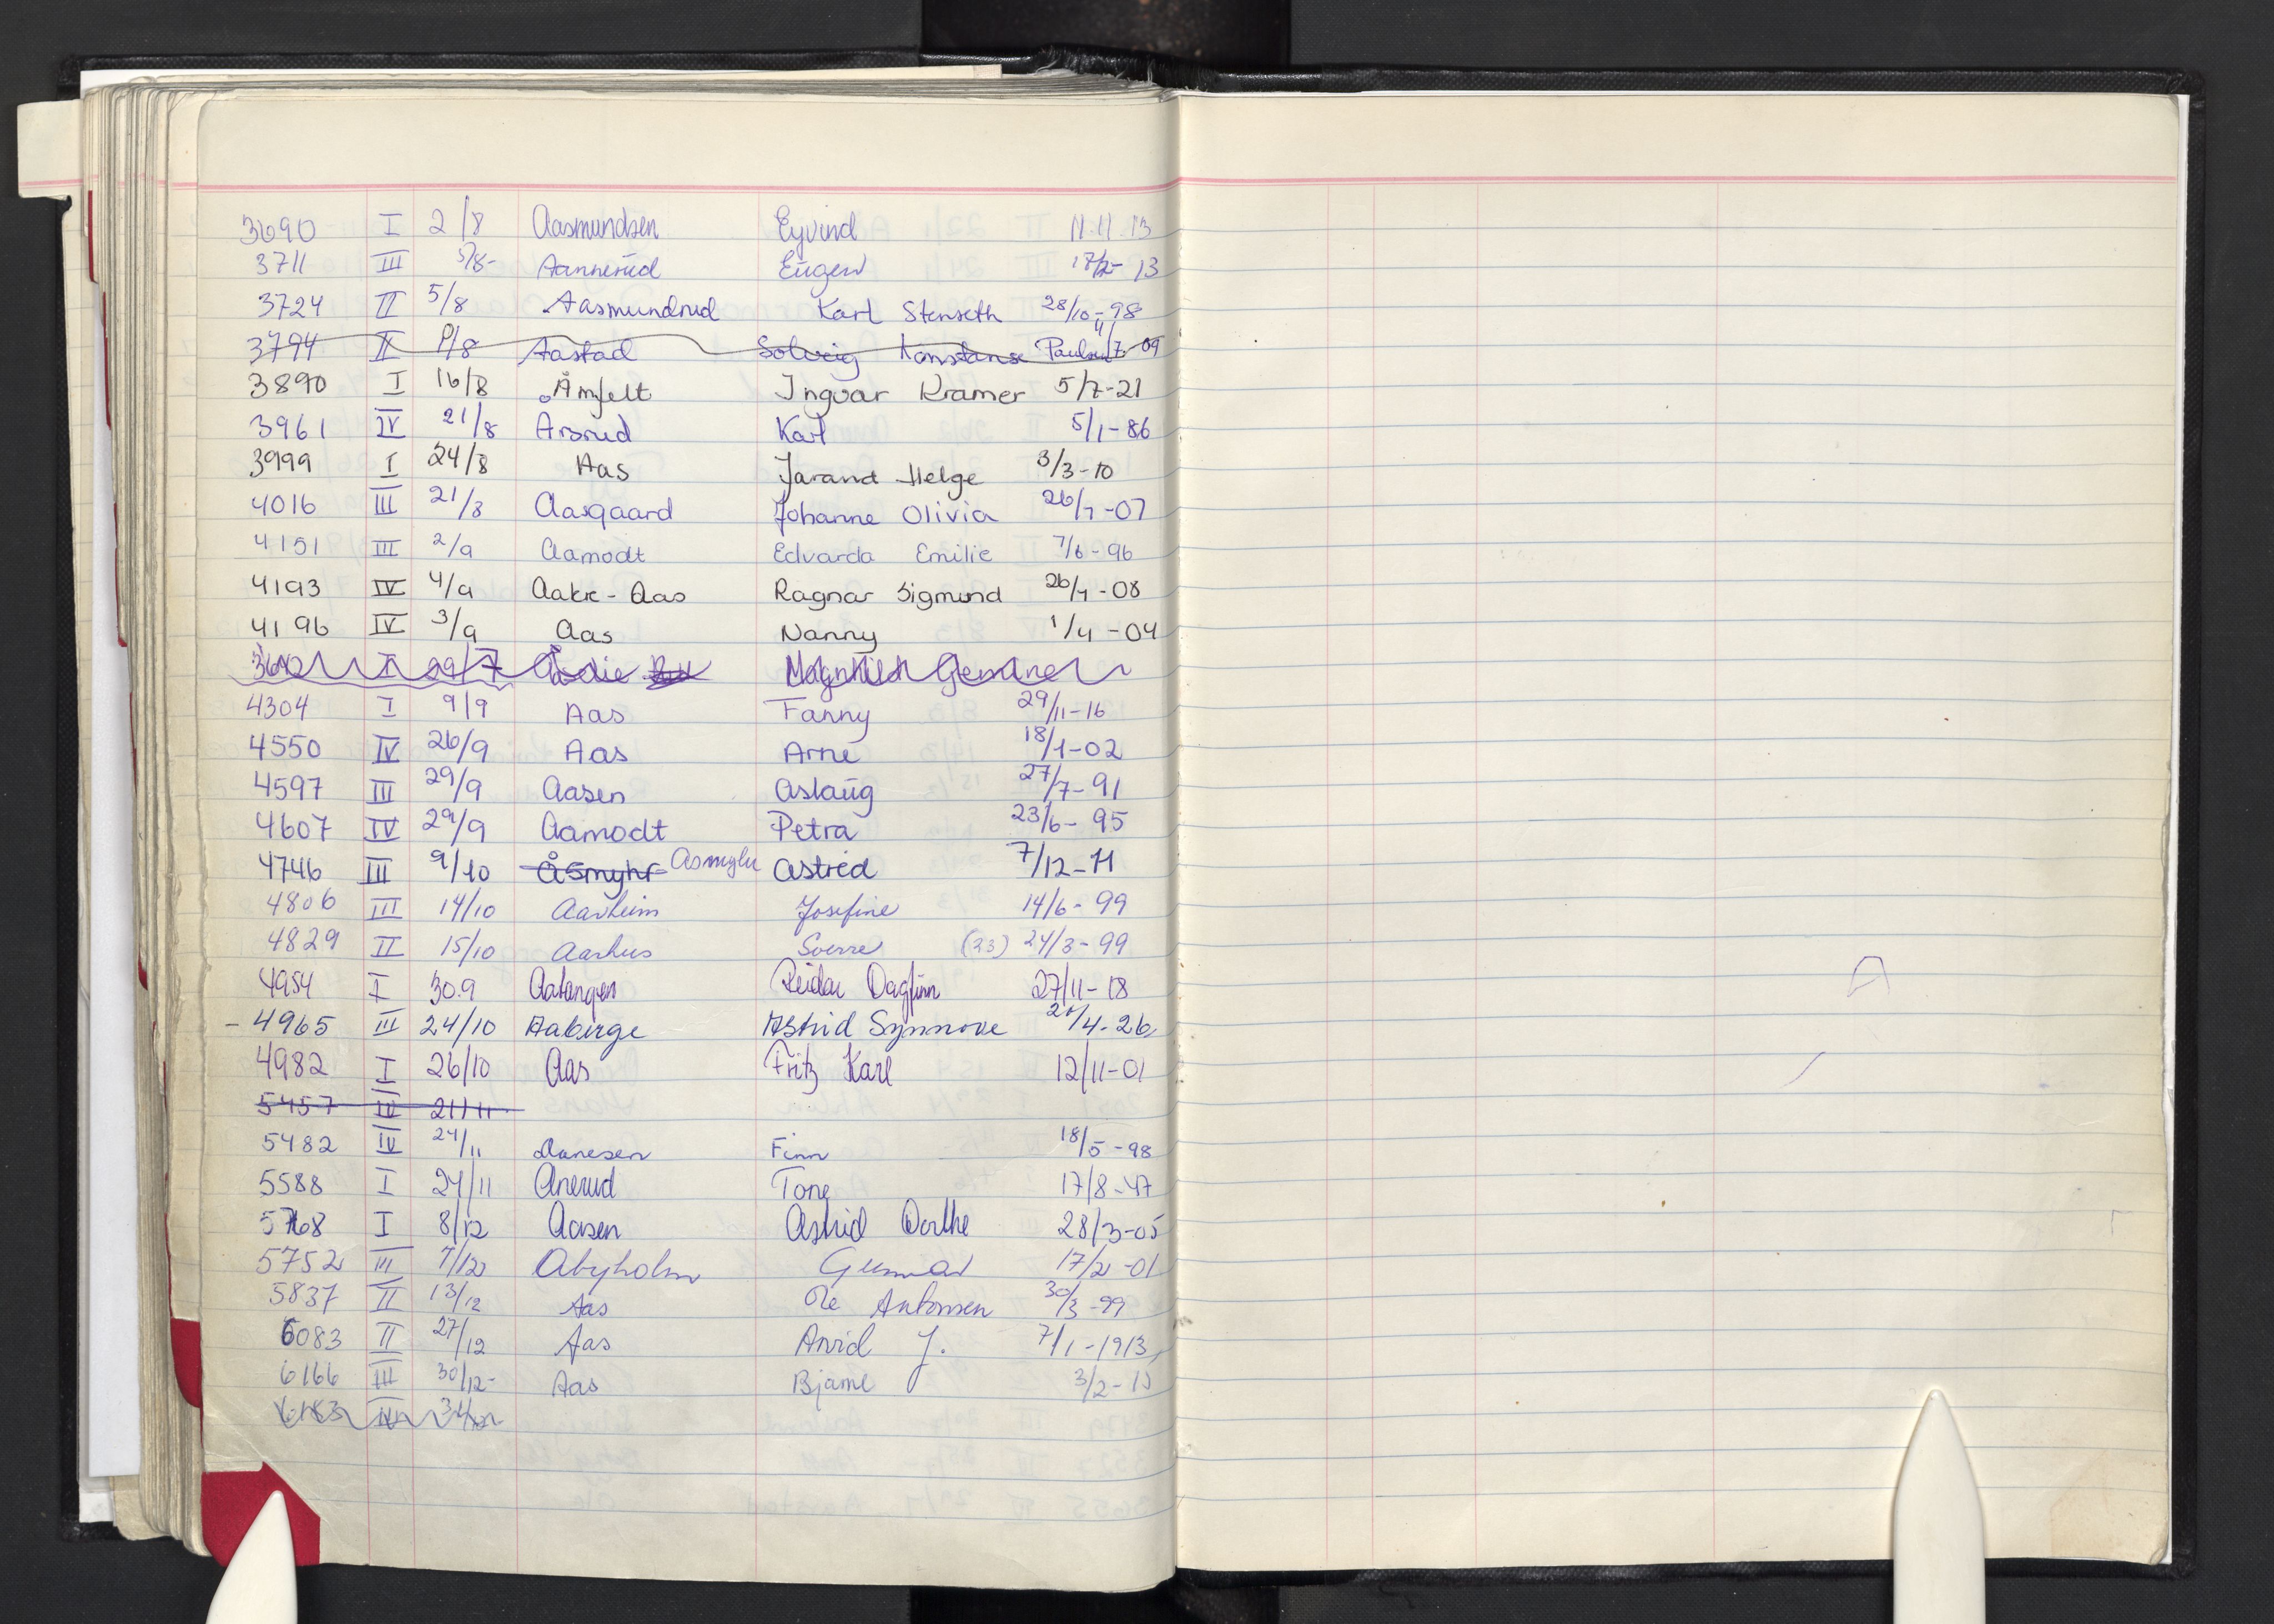 3690 I 2/8 Aasmundsen Eyvind 11.11.13
3711 III 5/8- Aannerud Eugen 17/2- 13
3724 II 5/8 Aasmundrud Karl Stenseth 28/10-98
3794 II 9/8 Aastad Solveig Konstanse Paulsen 11/7-09
3890 I 16/8 Åmfelt Ingvar Kramer 5/7-21
3961 IV 21/8 Årsrud Karl 5/1-86
3999 I 24/8 Aas Jarand Helge 3/3-10
4016 III 21/8 Aasgaard Johanne Olivia 26/7-07
4151 III 2/9 Aamodt Edvarda Emilie 7/6-96
4193 IV 4/9 Aakre-Aas Ragnar Sigmund 26/7-08
4196 IV 3/9 Aas Nanny 1/4-04
I 29/7 Magnhild
4304 I 9/9 Aas Fanny 29/11-16
4550 IV 26/9 Aas Arne 18/1-02
4597 III 29/9 Aasen Aslaug 27/7-91
4607 IV 29/9 Aamodt Petra 23/6-95
4746 III 9/10 Åsmyhr Asmyhr Astrid 7/12-11
4806 III 14/10 Aarheim Josefine 14/6-99
4829 II 15/10 Aarhus Sverre (23) 24/3-99
4954 I 30.9 Aatangen Reidar Dagfinn 27/11-18
- 4965 III 24/10 Aaberge Astrid Synnøve /4-26
4982 I 26/10 Aas Fritz Karl 12/11-01
5457 IV 21/11
5482 IV 24/11 Aanesen Finn 18/5-98
5588 I 24/11 Ånerud Tone 17/8-47
5768 I 8/12 Aasen Astrid Dorthe 28/3-05
5752 III 7/12 Abyholm Gunnar 17/2-01
5837 II 13/12 Aas Ole Antonsen 30/3-99
6083 II 27/12 Aas Arvid J. 7/1-1913
6166 III 30/12- Aas Bjarne 3/2-15
6183 IV